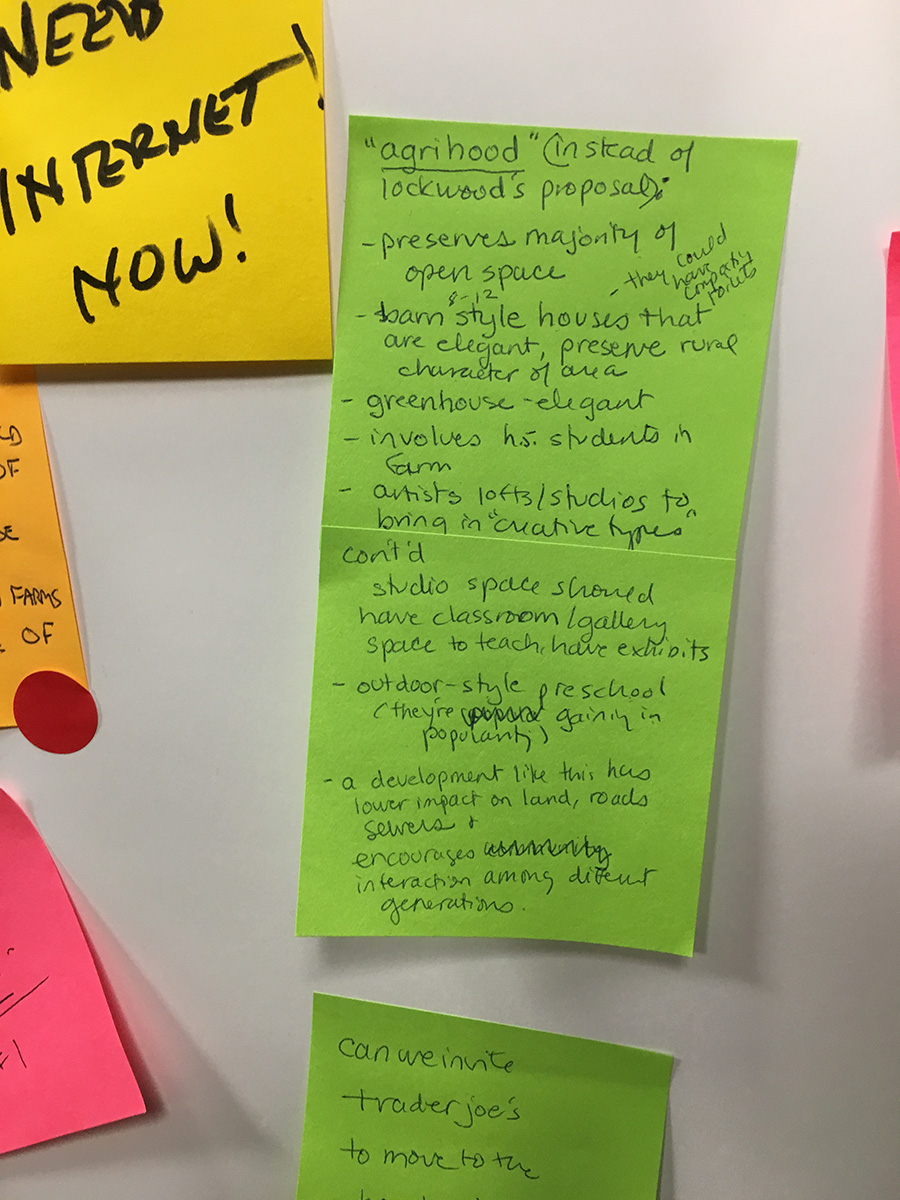 NEED
INTERNET!
NOW!
"agrihood" (instead of
lockwood's proposal):
- preserves majority of
open space
- they could
have
composting
toilets
8-12
- barn style houses that
are elegant, preserve rural
character of area
- greenhouse - elegant
- involves h.s. students in
farm
- artists lofts/studios to
bring in "creative types"
con't'd
studio space should
have classroom/gallery
space to teach, have exhibits
- outdoor-style preschool
(they're gaining in
popularity)
- a development like this has
lower impact on land, roads
sewers +
encourages
interaction among different
generations.
OF
FARMS
OF
can we invite
trader joe's
to move to the